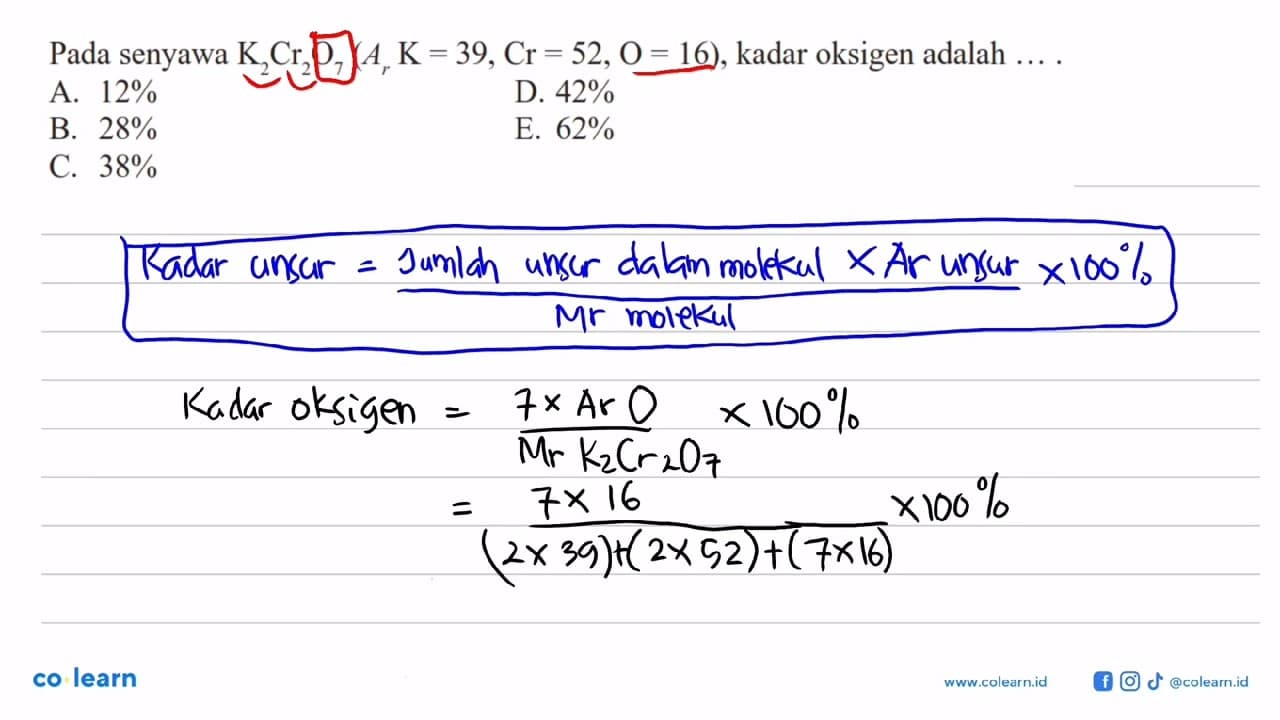 Pada senyawa K₂Cr₂O₇ (Aᵣ K = 39, Cr = 52, O = 16), kadar oksigen adalah ... .
A. 12% D. 42%
B. 28% E. 62%
C. 38%
Kadar unsur = Jumlah unsur dalam molekul × Ar unsur ×100%
Mr molekul
Kadar oksigen = 7× Ar O ×100%
Mr K₂Cr₂O₇
= 7× 16 ×100%
(2× 39)+(2× 52)+(7×16)
co learn
www.colearn.id @colearn.id